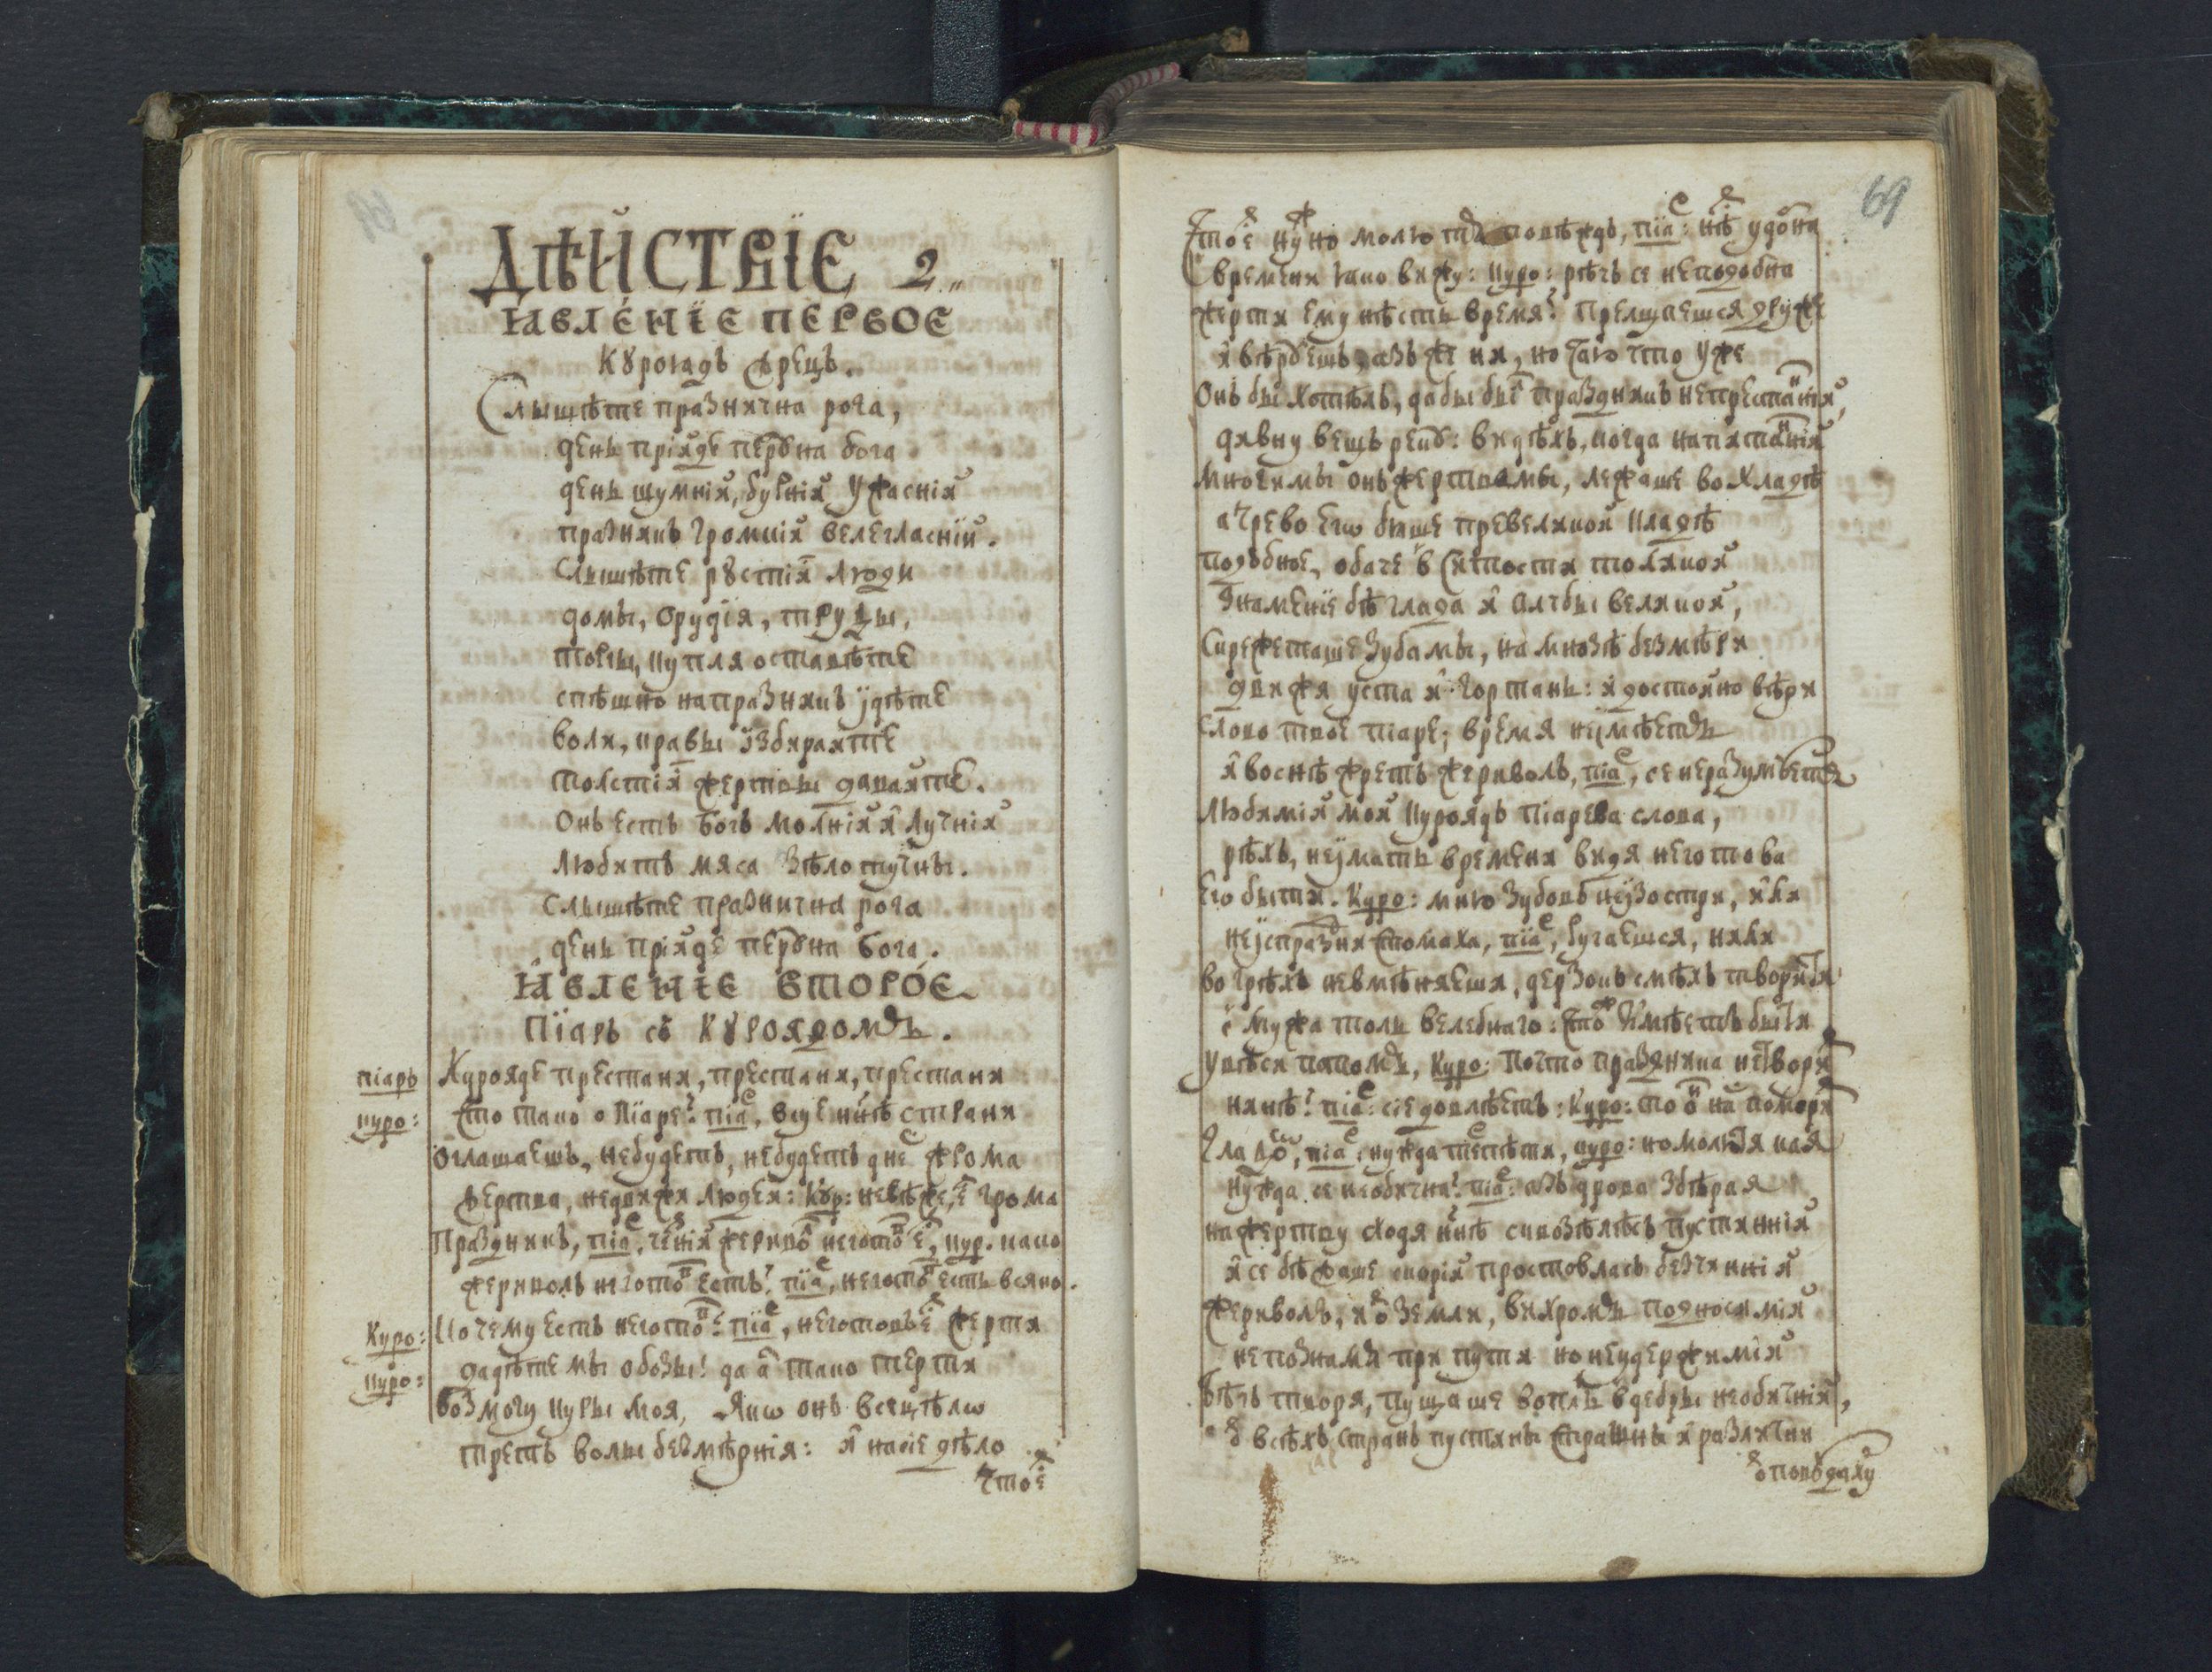 ДѢЙСТВІЕ 2
ꙖВЛЕ́НІЕ ПЕРВОЕ
Кꙋроꙗдъ жрецъ.
Слышѣте празнична рога,
день прійде перꙋна бога
день шумній, буйній ужасній
празникъ громкій велегласній.
Слышѣте рꙋстій люди
домы, орудія, труды,
торги, купля оставѣте
спѣшно на празникъ идѣте
воли, кравы избирайте
толстій жертвы давайте.
Онъ есть богъ молній и лучній
любитъ мяса зѣло тучны.
Слышѣте празнична рога
день прійде перꙋна бога.
ꙖВЛЕНІЕ ВТОРО́Е
Піаръ съ Кꙋроядомъ.
піаръ Курояде престани, престани, престани
куро: Что тако о Піаре? піа, всуе ннѣ страни
оглашаешъ, небудетъ, небудетъ дне жрома
жертва, недвижи людей: Кꙋр: невѣже, е грома
Праздникъ, піа, жерикѡ неготов е, кур. како
жериволъ неготов есть? піа, неготов есть всяко.
Куро: Почему есть неготов? піа, неготовъ е жерти
куро: дадѣте мы обозы! да а тако терти
возмогу куры моя, Якѡ онъ всецѣлѡ
третъ волы безмѣрнія: и на сіе дѣло
что е
69
Что е нужно молю тя повѣждъ, піа: нѣ удобна
времени како вижу: куро: рѣчъ се неподобна
жерти ему нѣсть время? прелщаешся друже
и вѣрѹешъ, азъ же ни, но чаю что уже
Онъ бы хотѣлъ, дабы былъ праздникъ непрестанній,
дивну вещъ реку: видѣхъ, когда напистанній
многими онъ жертвамы, лежаше во хладѣ
а чрево егѡ быше превеликой кладѣ
подобное, обаче в ситости толикой
знаменіе бѣ глада и алчбы великой,
Скрежеташе зубамы, намнозѣ безмѣри
движя уста и гортань: и достойно вѣри
слово твое піаре; время не имѣетъ
и воснѣ жретъ жериволъ, піа, се не разумѣетъ
Любимій мой Куроядъ піарева слова,
рѣхъ, не имать времени видя неготова
его быти. Куро: мню зубовъ не изостри, или
не испразни стомаха, піа, ругаешся, или
во грѣхъ невмѣняеши, дерзокъ смѣхъ творити
с мужа толь велебнаго: что имѣетъ быти
увѣси потомъ, куро: Почто празника не твори
ннѣ? піа: сіе довлѣетъ: Куро: то он на покори
глад, піа, нужда терпѣти, куро: но молютя кая
нужда се необична? піа: азъ дрова збѣрая
на жертву ходя ннѣ сквозѣ лѣсъ пустинній
и се бѣжаше скорій простовласъ безчинній
жериволъ, и о земли, вихромъ подносимій
непознамя при пути но неудержимій
бѣгъ творя, пущаше вопль в дебры необичній,
ѿ всѣхъ странъ пустыны страшны и различни
ѿповѣдаху